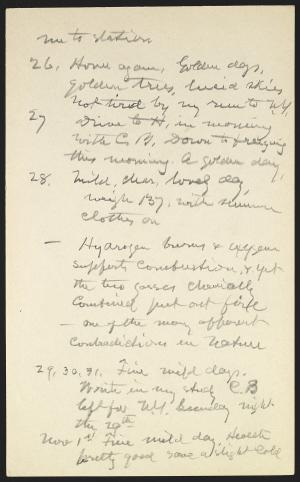 me to station
26, Home again, Golden days,
golden trees, lucid skies
Not tired by my run to N.Y,
27 Drive to H, in morning
with C, B, Down to freezing
this morning. A golden day,
28. Mild, clear, lovely day
weigh 137, with summer
clothes on
— Hydrogen burns & oxygen
supports combustion, & yet
the two gases chemically
combined put out fire
— one of the many apparent
contradictions in Nature
29, 30, 31, Fine mild days.
Write in my study C.B
left for N.Y. Sunday night
the 29th
Nov 1st Fine mild day, Health
pretty good save a slight cold